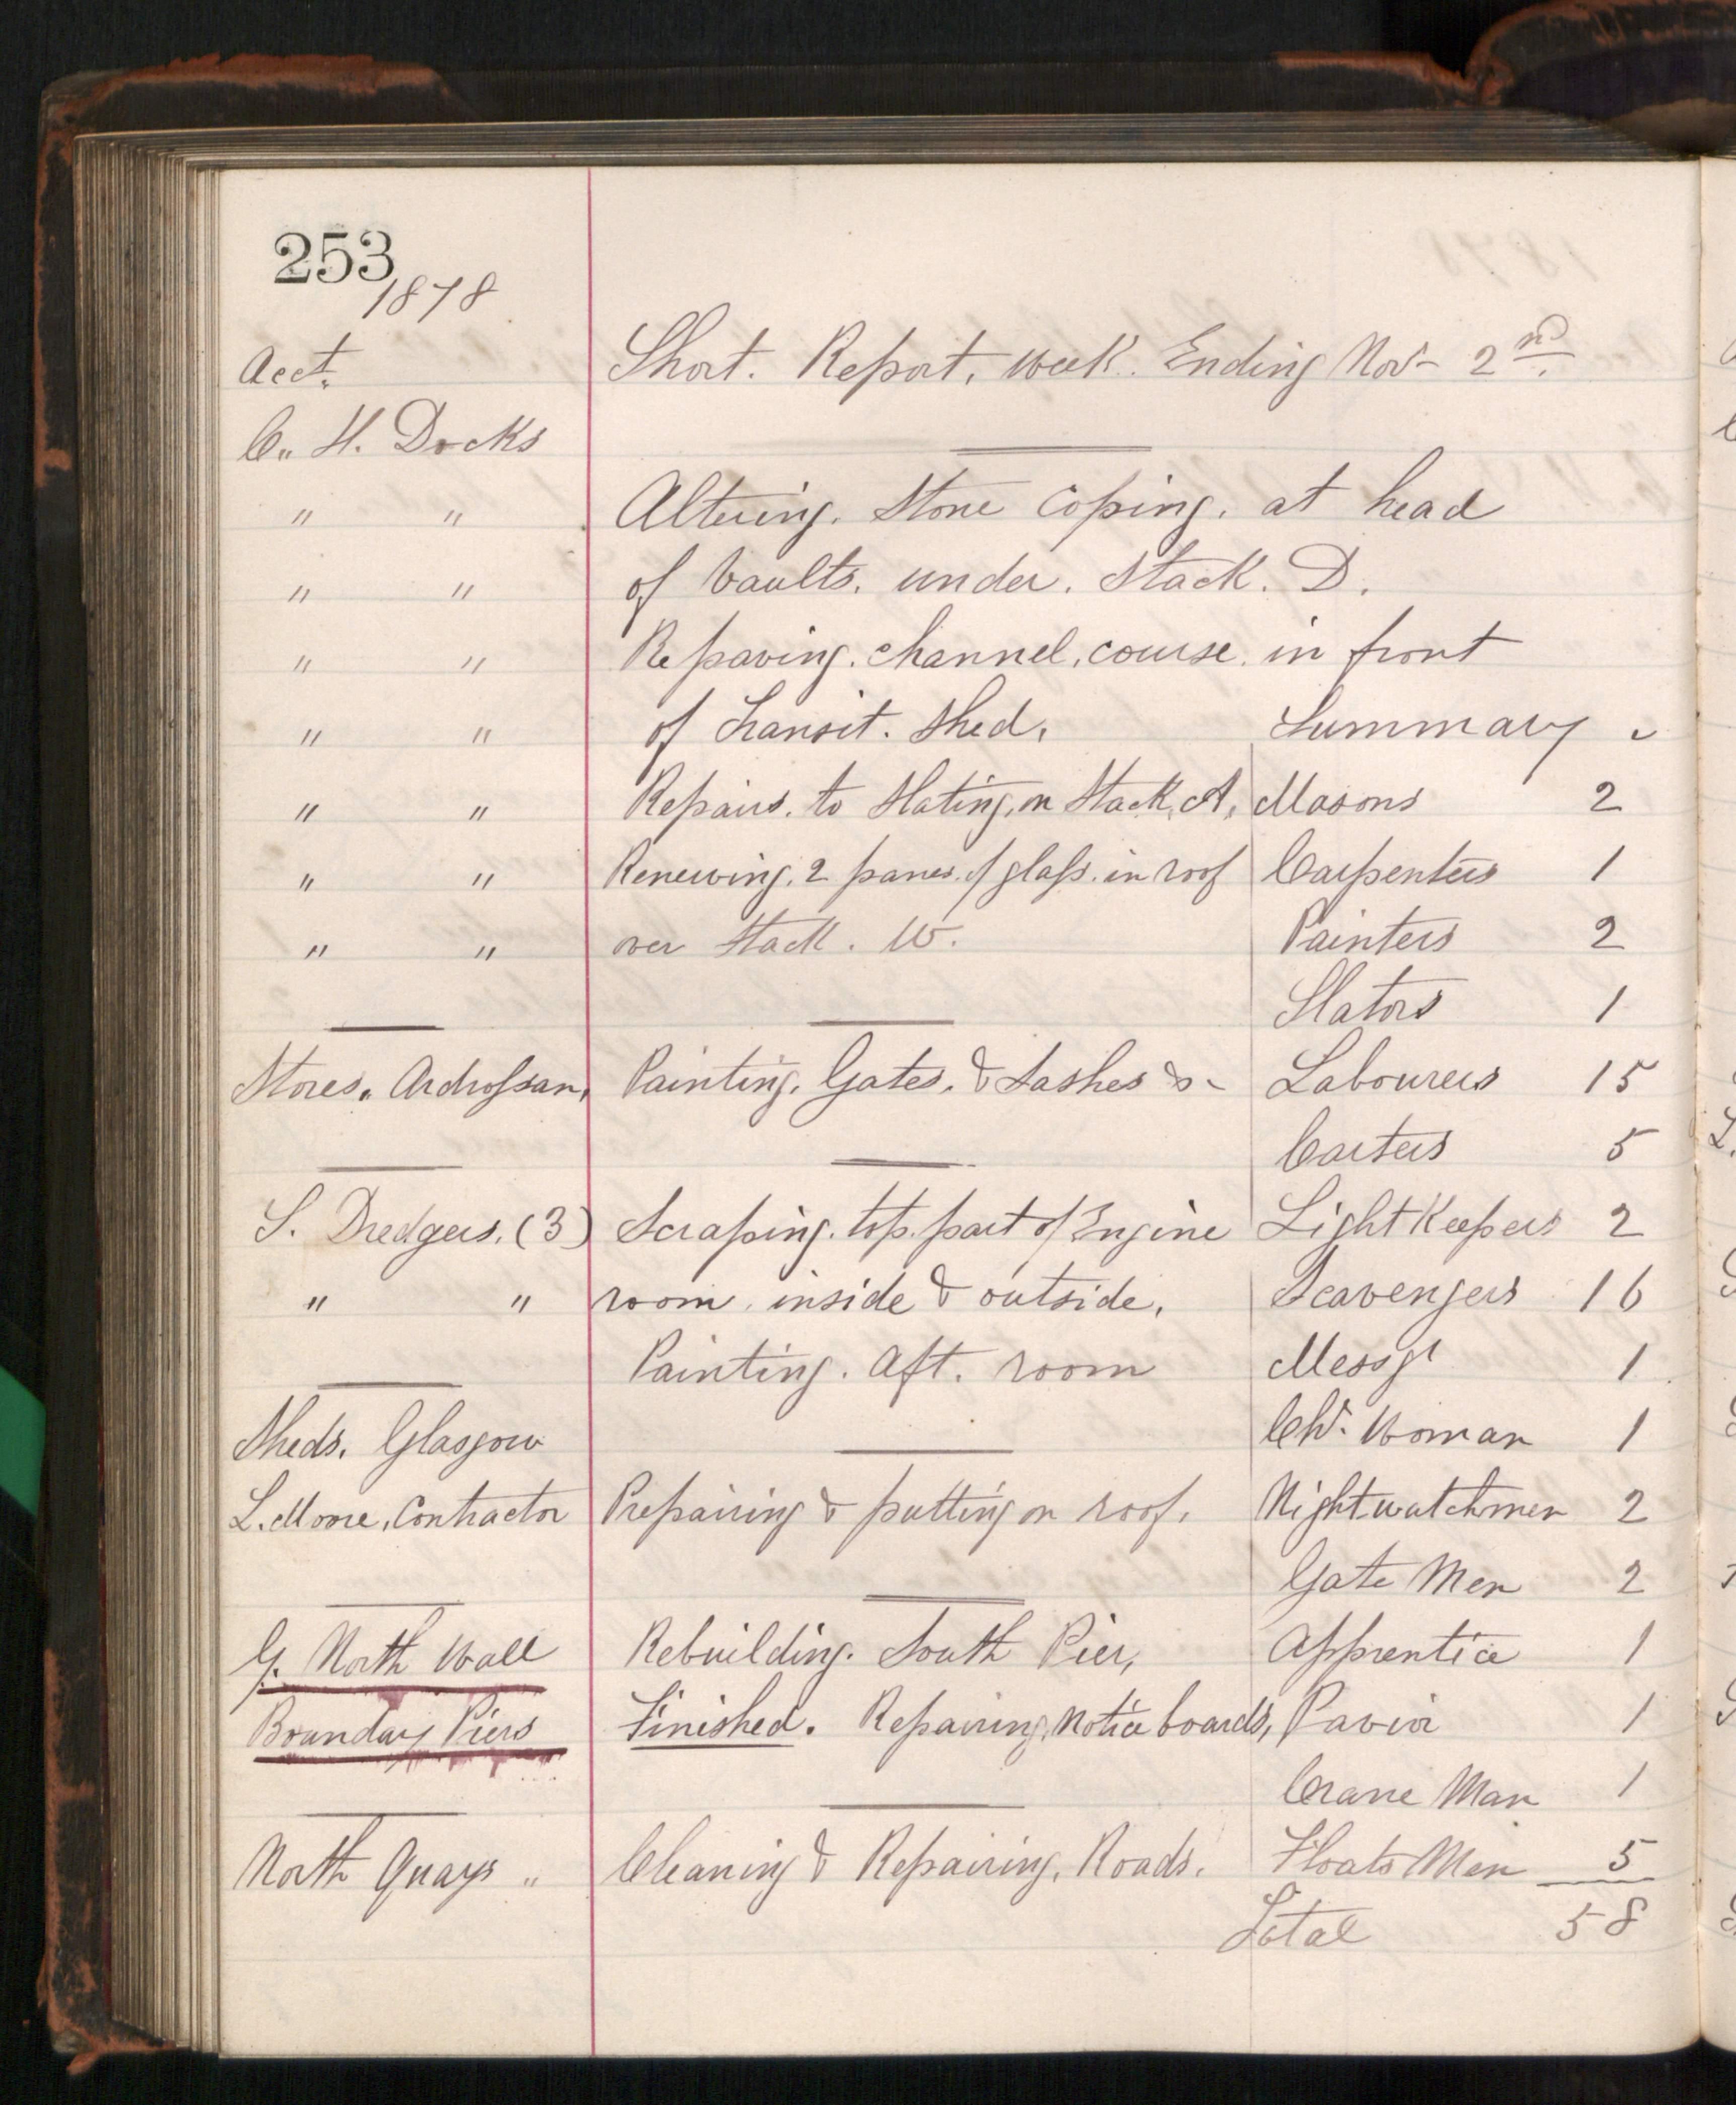 253
1878
Acct. Short. Report. week. Ending Nov- 2nd.
C. H. Docks
" " Altering. Stone Coping. at head
" " of Vaults. under. Stack. D.
" " Repaving. channel. course. in front
" " of Transit. Shed. Summary
" " Repairs. to Slating. on Stack. A. Masons 2
" " Renewing. 2 panes. of glass. in roof Carpenters 1
" " over Stack. W. Painters 2
Slators 1
Stores. Ardrossan. Painting. Gates. & Sashes &- Labourers 15
Carters 5
S. Dredgers. (3) Scraping. top. part of Engine Light Keepers 2
" " room. inside & outside. Scavengers 16
Painting. Aft. room Messgr 1
Sheds. Glasgow Chr. Woman 1
L. Moore, Contractor Preparing & putting on roof. Nightwatchmen 2
Gate Men 2
G. North Wall Rebuilding. South Pier, Apprentice 1
Boundary Piers Finished. Repairing. notice boards, Pavior 1
Crane Man 1
North Quays " Cleaning & Repairing. Roads. Floats Men 5
Total 58